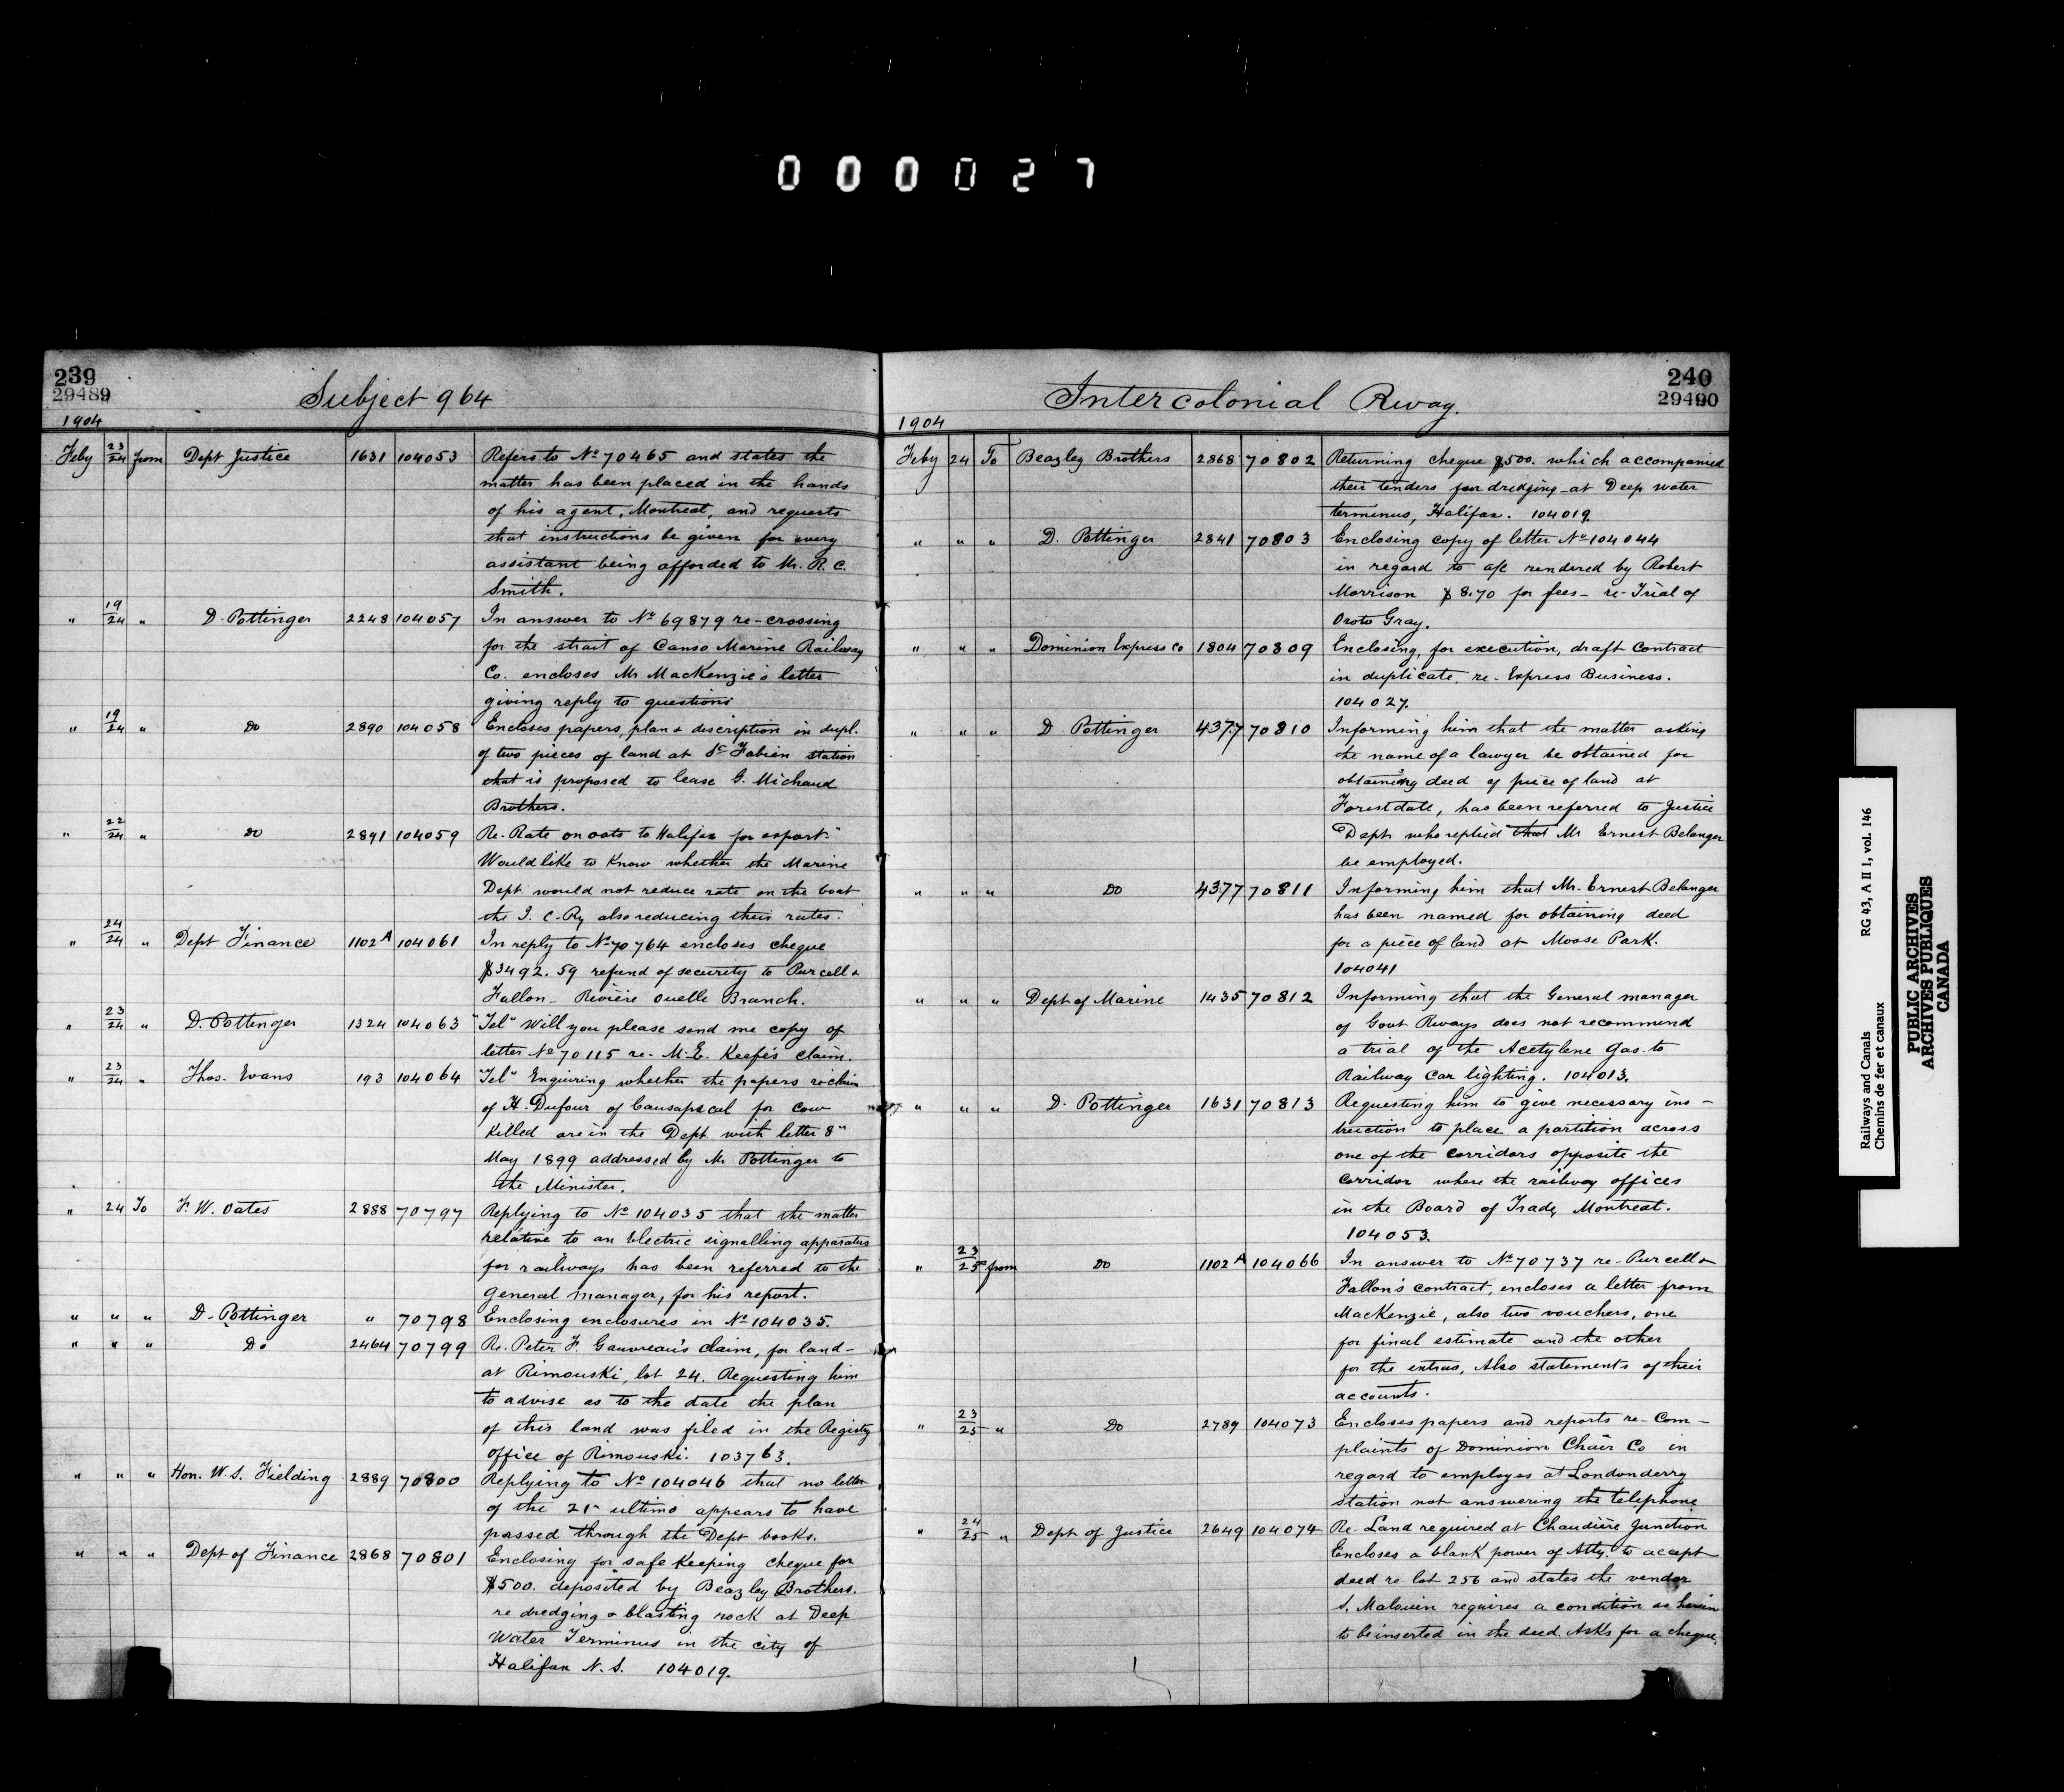 000027
239
29489
Subject 964
1904
Feby 23/24 from Dept Justice 1631 104053 Refers to No 70465 and states the
matter has been placed in the hands
of his agent, Montreal, and requests
that instructions be given for every
assistant being afforded to Mr. R. C.
Smith.
" 19/24 " D. Pottinger 2248 104057 In answer to No 69879 re-crossing
for the strait of Canso Marine Railway
Co. encloses Mr MacKenzie's letter
giving reply to questions
" 19/24 " Do 2890 104058 Encloses papers, plan & discription in dupl.
of two pieces of land at St Fabien station
that is proposed to lease G. Michaud
Brothers.
" 22/24 " Do 2891 104059 Re-Rate on oats to Halifax for export.
Would like to know whether the Marine
Dept. would not reduce rate on the boat
the I. C. Ry also reducing their rates.
" 24/24 " Dept Finance 1102A 104061 In reply to No 70764 encloses cheque
$3492.59 refund of security to Purcell &
Fallon - Rivière Ouelle Branch.
" 23/24 " D. Pottinger 1324 104063 "Tel" Will you please send me copy of
letter No 70115 re- M. E. Keefe's claim.
" 23/24 " Thos. Evans 193 104064 "Tel" Enquiring whether the papers re claim
of H. Dufour of Causapscal for cow
killed are in the Dept. with letter 8"
May 1899 addressed by Mr Pottinger to
the Minister.
" 24 To F. W. Oates 2888 70797 Replying to No 104035 that the matter
relative to an Electric signalling apparatus
for railways has been referred to the
General Manager, for his report.
" " " D. Pottinger " 70798 Enclosing enclosures in No 104035.
" " " Do 2464 70799 Re. Peter F. Gauvreau's claim, for land-
at Rimouski, lot 24. Requesting him
to advise as to the date the plan
of this land was filed in the Registry
office of Rimouski. 103763.
" " " Hon. W. S. Fielding 2889 70800 Replying to No 104046 that no letter
of the 21" ultimo appears to have
passed through the Dept books.
" " " Dept of Finance 2868 70801 Enclosing for safe keeping cheque for
$500. deposited by Beazley Brothers.
re dredging & blasting rock at Deep
Water Terminus in the city of
Halifax N. S. 104019.
240
29490
Intercolonial Rway.
1904
Feby 24 To Beazley Brothers 2868 70802 Returning cheque $500. which accompanied
their tenders for dredging at Deep water
terminus, Halifax. 104019.
" " " D. Pottinger 2841 70803 Enclosing copy of letter No 104044
in regard to a/c rendered by Robert
Morrison $8.70 for fees - re-Trial of
Oroto Gray.
" " " Dominion Express Co 1804 70809 Enclosing, for execution, draft Contract
in duplicate, re- Express Business.
104027.
" " " D Pottinger 4377 70810 Informing him that the matter asking
the name of a lawyer be obtained for
obtaining deed of piece of land at
Forestdale, has been referred to Justice
Dept who replied that Mr Ernest Belanger
be employed.
" " " Do 4377 70811 Informing him that Mr. Ernest Belanger
has been named for obtaining deed
for a piece of land at Moose Park.
104041
" " " Dept of Marine 1435 70812 Informing that the General manager
of Govt Rways does not recommend
a trial of the Acetylene Gas to
Railway Car lighting. 104013.
" " " D. Pottinger 1631 70813 Requesting him to give necessary ins-
truction to place a partition across
one of the corridors opposite the
corridor where the railway offices
in the Board of Trade, Montreal.
104053.
" 23/25 from Do 1102A 104066 In answer to No 70737 re- Purcell &
Fallon's contract, encloses a letter from
MacKenzie, also two vouchers, one
for final estimate and the other
for the extras, Also statements of their
accounts.
" 23/25 " Do 2789 104073 Encloses papers and reports re- Com-
plaints of Dominion Chair Co in
regard to employes at Londonderry
station not answering the telephone
" 24/25 " Dept of Justice 2649 104074 Re- Land required at Chaudière Junction
Encloses a blank power of Atty. to accept
deed re lot 256 and states the vendor
S. Malouin requires a condition as herein
to be inserted in the deed. Asks for a cheque.
Railways and Canals RG 43, A II 1, vol. 146
Chemins de fer et canaux
PUBLIC ARCHIVES
ARCHIVES PUBLIQUES
CANADA